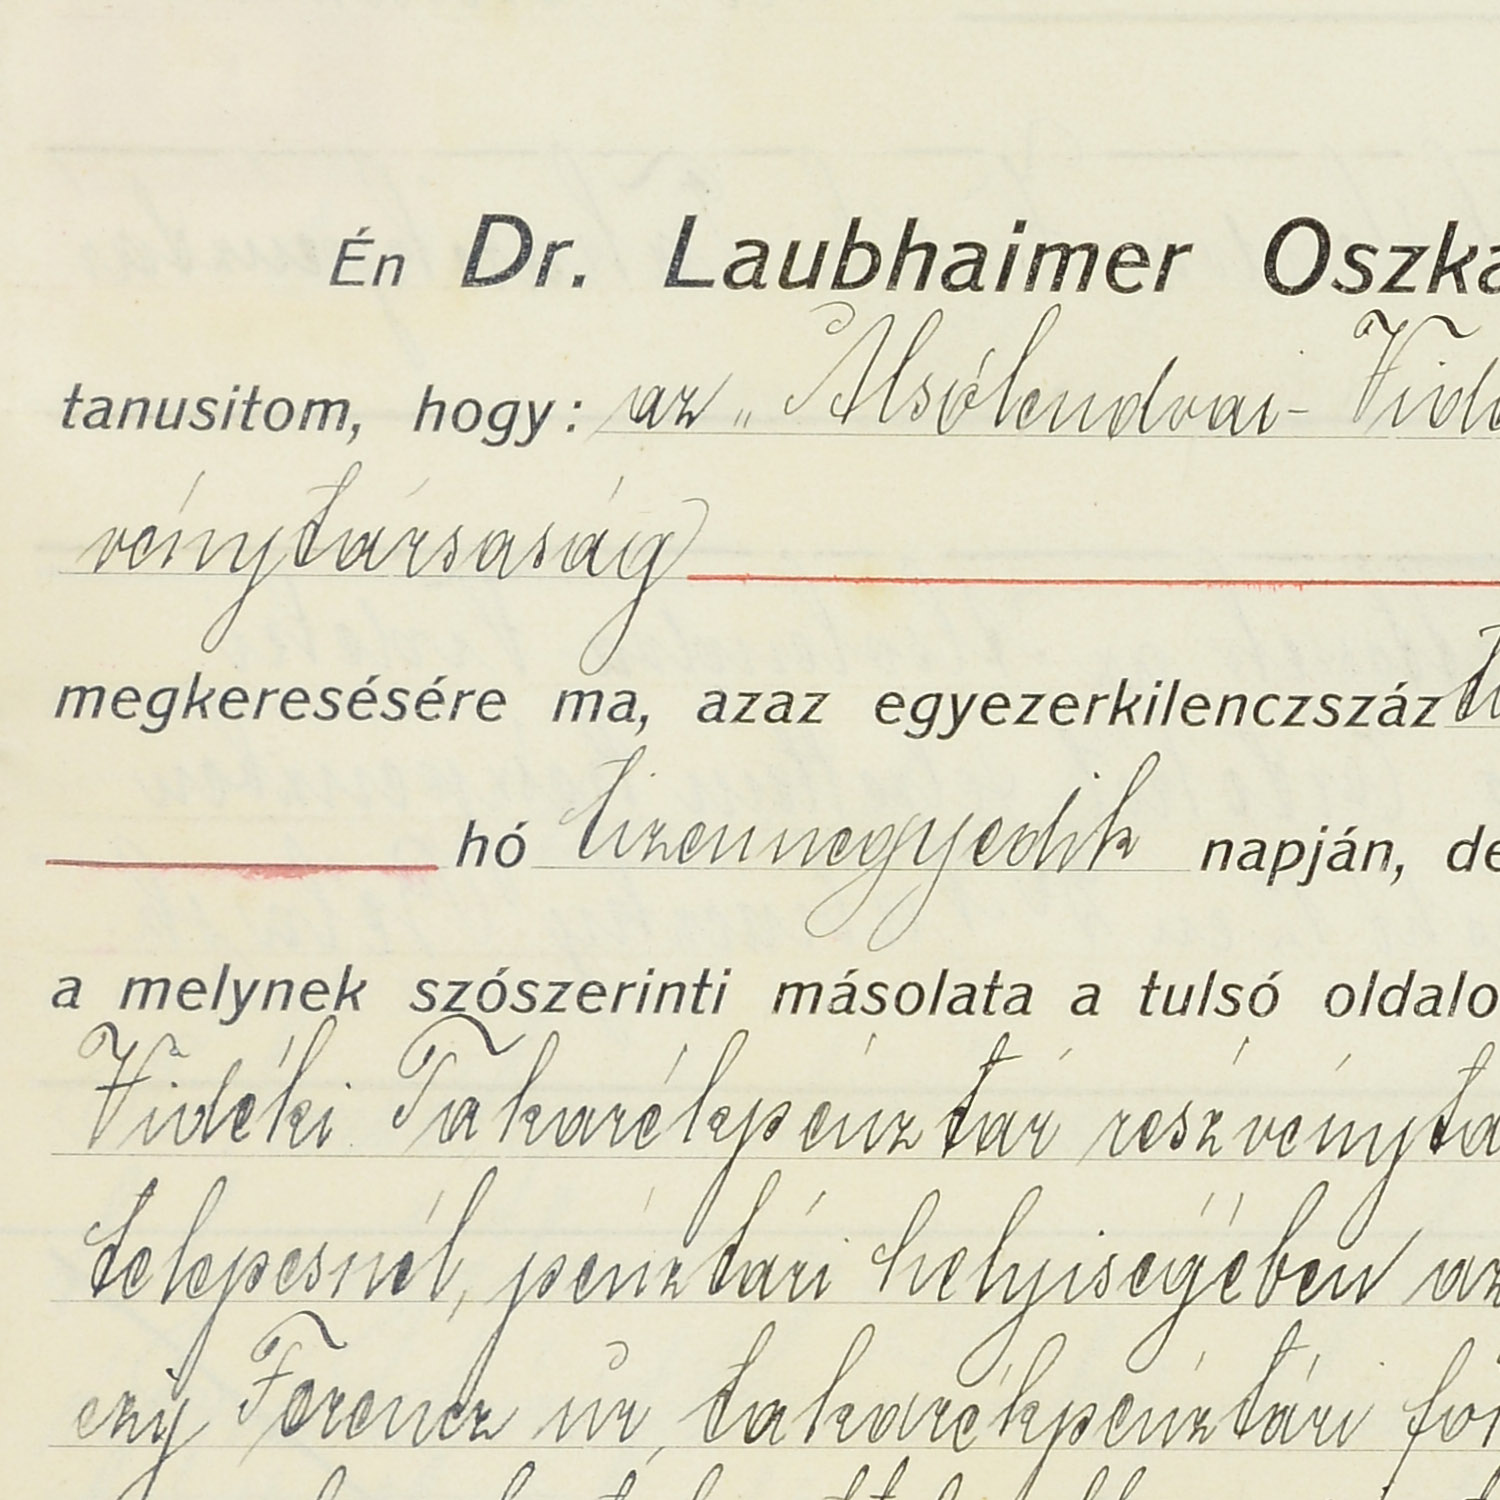 Én Dr. Laubhaimer Oszká
tanusitom, hogy: az „Alsólendvai- Vidé
vénytársaság
megkeresésére ma, azaz egyezerkilenczszáz
hó tizennegyedik napján, de
a melynek szószerinti másolata a tulsó oldalo
Vidéki Takarékpénztár részvényta
telepesnél, pénztári helyiségében az
czy Ferencz úr, takarékpénztári fő